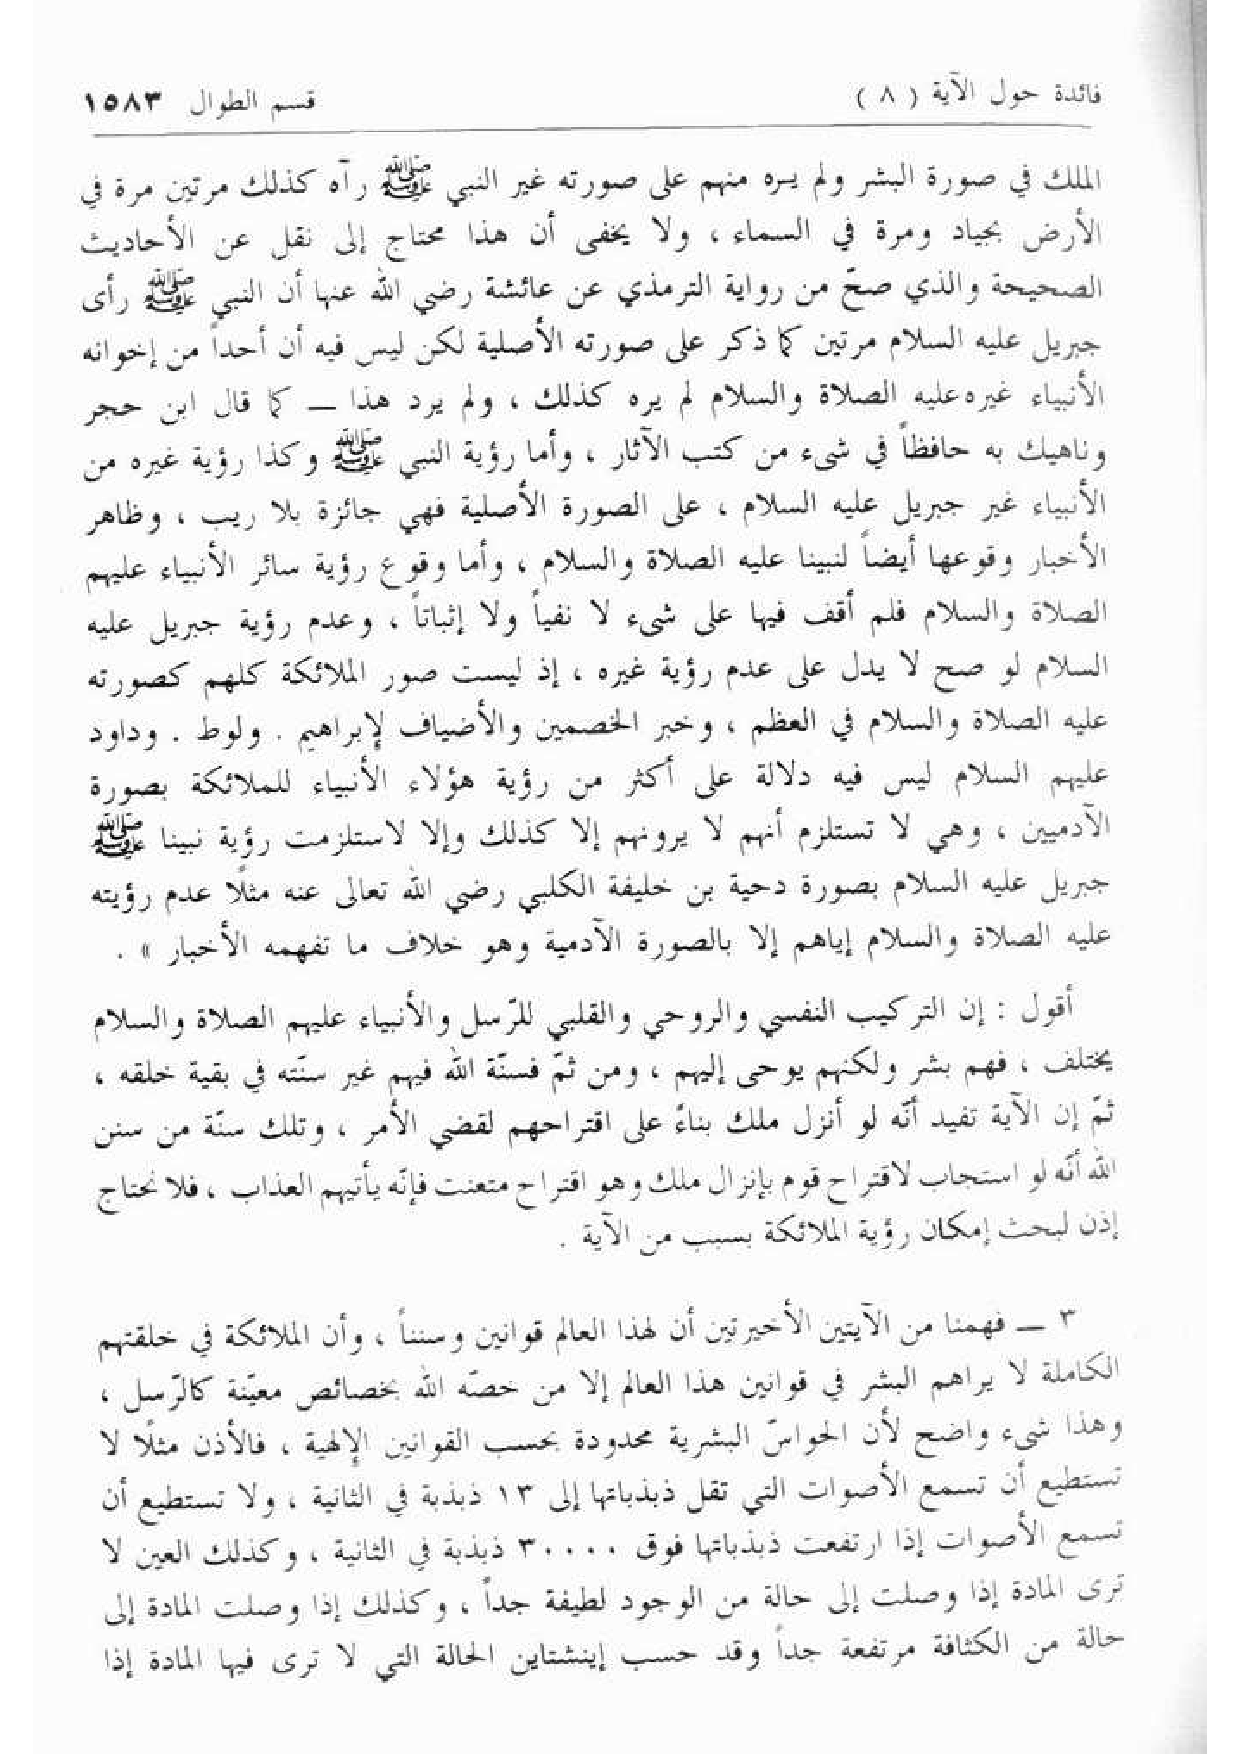 فائدة حول الآية ( ٨ )
قسم الطوال ١٥٨٣
الملك في صورة البشر ولم يره منهم على صورته غير النبي ﷺ رآه كذلك مرتين مرة في
الأرض بجياد ومرة في السماء ، ولا يخفى أن هذا محتاج إلى نقل عن الأحاديث
الصحيحة والذي صحّ من رواية الترمذي عن عائشة رضي الله عنها أن النبي ﷺ رأى
جبريل عليه السلام مرتين كما ذكر على صورته الأصلية لكن ليس فيه أن أحداً من إخوانه
الأنبياء غيره عليه الصلاة والسلام لم يره كذلك ، ولم يرد هذا ــ كما قال ابن حجر
وناهيك به حافظاً في شيء من كتب الآثار ، وأما رؤية النبي ﷺ وكذا رؤية غيره من
الأنبياء غير جبريل عليه السلام ، على الصورة الأصلية فهي جائزة بلا ريب ، وظاهر
الأخبار وقوعها أيضاً لنبينا عليه الصلاة والسلام ، وأما وقوع رؤية سائر الأنبياء عليهم
الصلاة والسلام فلم أقف فيها على شيء لا نفياً ولا إثباتاً ، وعدم رؤية جبريل عليه
السلام لو صح لا يدل على عدم رؤية غيره ، إذ ليست صور الملائكة كلهم كصورته
عليه الصلاة والسلام في العظم ، وخبر الخصمين والأضياف لإبراهيم . ولوط . وداود
عليهم السلام ليس فيه دلالة على أكثر من رؤية هؤلاء الأنبياء للملائكة بصورة
الآدميين ، وهي لا تستلزم أنهم لا يرونهم إلا كذلك وإلا لاستلزمت رؤية نبينا ﷺ
جبريل عليه السلام بصورة دحية بن خليفة الكلبي رضي الله تعالى عنه مثلًا عدم رؤيته
عليه الصلاة والسلام إياهم إلا بالصورة الآدمية وهو خلاف ما تفهمه الأخبار » .
أقول : إن التركيب النفسي والروحي والقلبي للرّسل والأنبياء عليهم الصلاة والسلام
يختلف ، فهم بشر ولكنهم يوحى إليهم ، ومن ثمّ فسنّة الله فيهم غير سنّته في بقية خلقه ،
ثمّ إن الآية تفيد أنّه لو أنزل ملك بناءً على اقتراحهم لقضي الأمر ، وتلك سنّة من سنن
الله أنّه لو استجاب لاقتراح قوم بإنزال ملك وهو اقتراح متعنت فإنّه يأتيهم العذاب ، فلا نحتاج
إذن لبحث إمكان رؤية الملائكة بسبب من الآية .
٣ ــ فهمنا من الآيتين الأخيرتين أن لهذا العالم قوانين وسنناً ، وأن الملائكة في خلقتهم
الكاملة لا يراهم البشر في قوانين هذا العالم إلا من خصّه الله بخصائص معيّنة كالرّسل ،
وهذا شيء واضح لأن الحواسّ البشرية محدودة بحسب القوانين الإلهية ، فالأذن مثلًا لا
تستطيع أن تسمع الأصوات التي تقل ذبذباتها إلى ١٣ ذبذبة في الثانية ، ولا تستطيع أن
تسمع الأصوات إذا ارتفعت ذبذباتها فوق ٣٠٠٠٠ ذبذبة في الثانية ، وكذلك العين لا
ترى المادة إذا وصلت إلى حالة من الوجود لطيفة جداً ، وكذلك إذا وصلت المادة إلى
حالة من الكثافة مرتفعة جداً وقد حسب إينشتاين الحالة التي لا ترى فيها المادة إذا